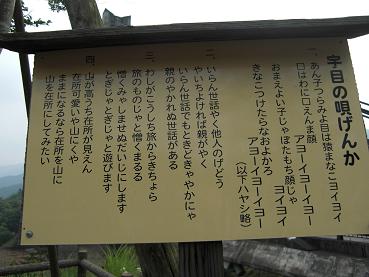 宇目の唄げんか
一、あん子つらみよ目は猿まなこヨイヨイ
口はわに口えんま顔
アヨーイヨーイヨー
おまえよい子じゃぼたもち顔じゃ
ヨイヨイ
きなこつけたらなおよかろ
アヨーイヨーイヨー
(以下ハヤシ略)
二、いらん世話やく他人のげどう
やいちよければ親がやく
いらん世話でもときどきゃやかにゃ
親のやかれぬ世話がある
三、わしがこうしち旅からきちょら
旅のものじゃと憎くまるる
憎くみしませぬだいじにします
とぎじゃとぎじゃと遊びます
四、山が高うち在所が見えん
在所可愛いや山にくや
ままになるなら在所を山に
山を在所にしてみたい